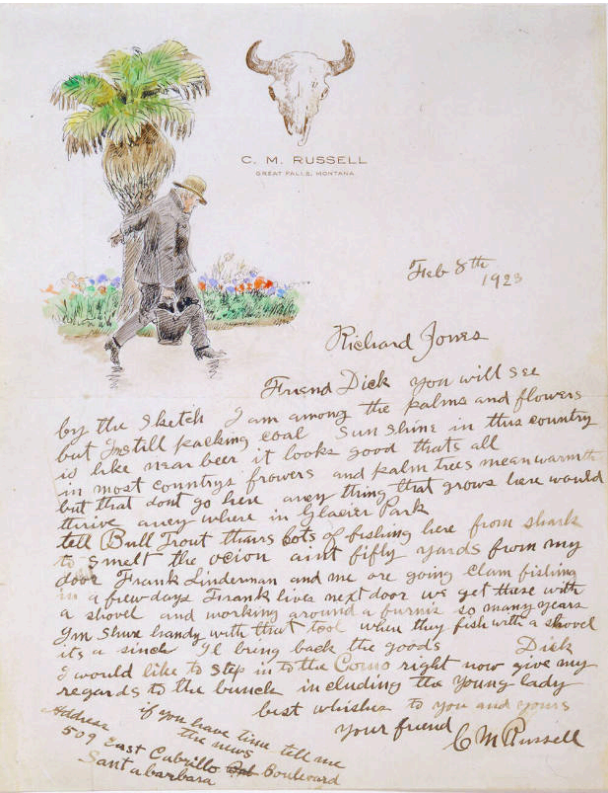 C. M. RUSSELL
GREAT FALLS, MONTANA
Feb 8th
1923
Richard Jones
Friend Dick you will see
by the sketch I am among the palms and flowers
but Im still packing coal Sun shine in this country
is like near beer it looks good thats all
in most countrys frowers and palm trees mean warmth
but that dont go here aney thing that grows here would
thrive aney where in Glacier Park
tell Bull Trout thairs lots of fishing here from shark
to smelt the ocion aint fifty yards from my
door Frank Linderman and me are going clam fishing
in a few days Frank lives next door we get these with
a shovel and working around a furnis so many years
Im shure handy with that tool when they fish with a shovel
its a sinch Il bring back the goods Dick
I would like to step in to the Como right now give my
regards to the bunch including the young lady
best whishes to you and yours
your friend
C M Russell
if you have time tell me
the news
Address
509 East Cabrillo Boulevard
Santabarbara